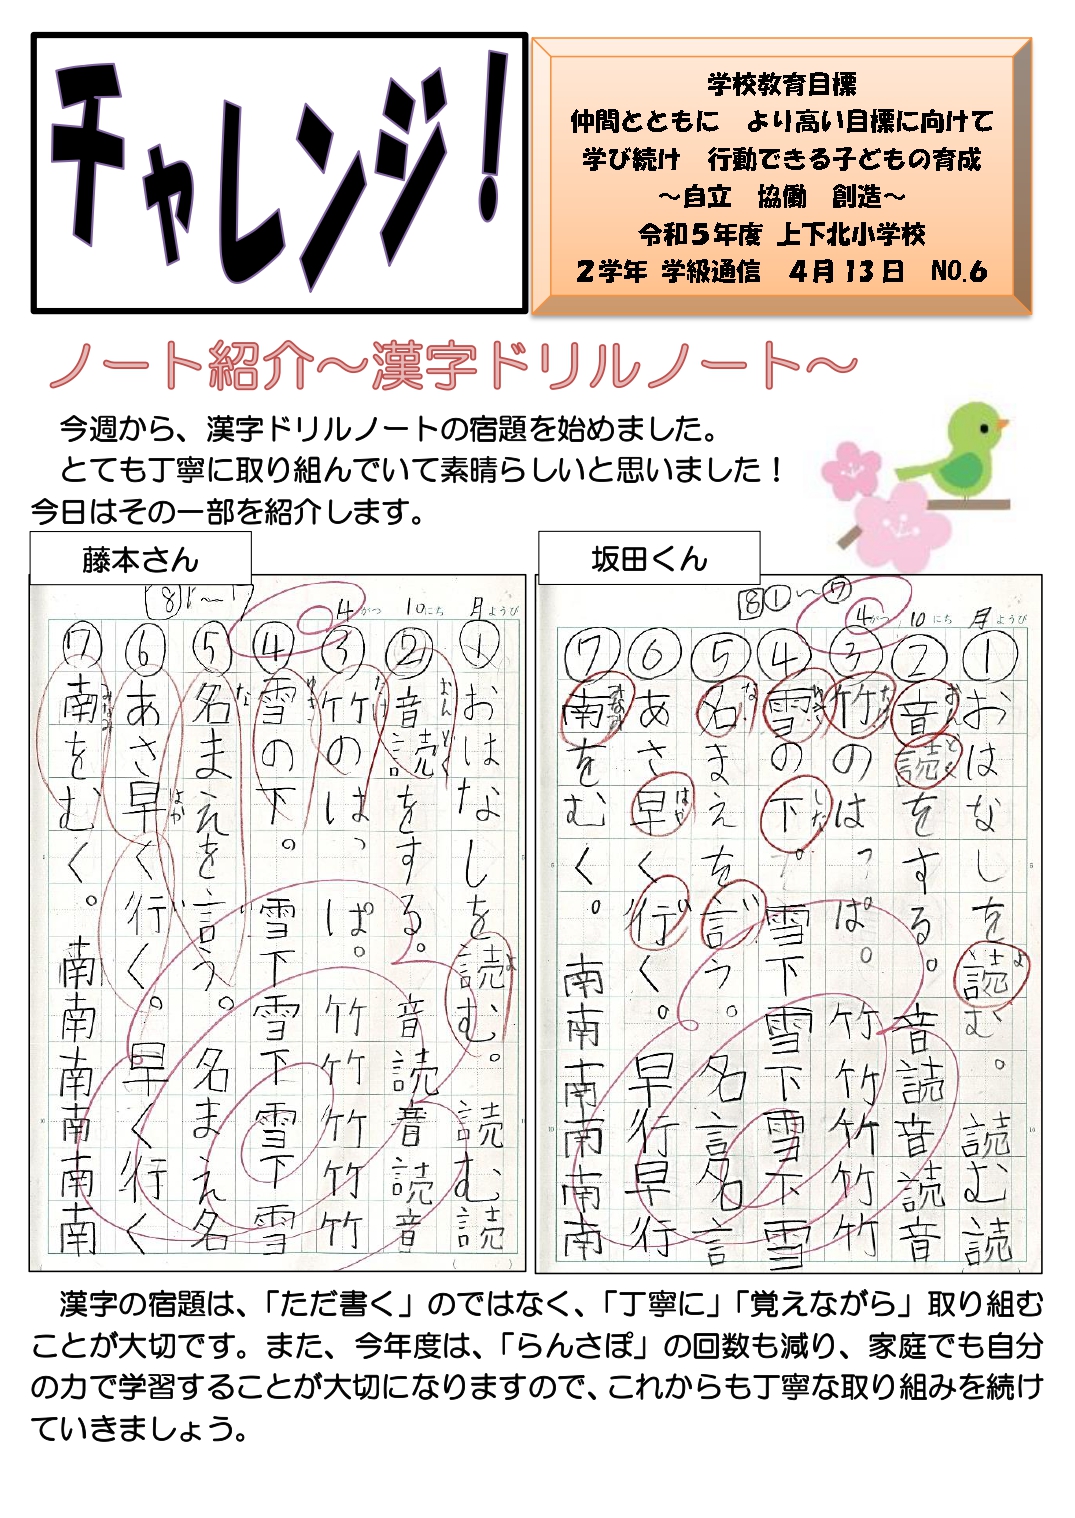 チャレンジ！
学校教育目標
仲間とともに　より高い目標に向けて
学び続け　行動できる子どもの育成
～自立　協働　創造～
令和５年度 上下北小学校
２学年 学級通信　４月13日　NO.6
ノート紹介～漢字ドリルノート～
今週から、漢字ドリルノートの宿題を始めました。
とても丁寧に取り組んでいて素晴らしいと思いました！
今日はその一部を紹介します。
藤本さん
4がつ 10にち 月ようび
①おはなしを読む。読む読
②音読をする。音読音読音
③竹のはっぱ。竹竹竹竹竹
④雪の下。雪下雪下雪下雪
⑤名まえを言う。名まえ名
⑥あさ早く行く。早く行く
⑦南をむく。南南南南南南
坂田くん
8①～⑦
4がつ 10にち 月ようび
①おはなしを読む。読む読
②音読をする。音読音読音
③竹のはっぱ。竹竹竹竹竹
④雪の下。雪下雪下雪下雪
⑤名まえを言う。名言名言
⑥あさ早く行く。早行早行
⑦南をむく。南南南南南南
漢字の宿題は、「ただ書く」のではなく、「丁寧に」「覚えながら」取り組む
ことが大切です。また、今年度は、「らんさぽ」の回数も減り、家庭でも自分
の力で学習することが大切になりますので、これからも丁寧な取り組みを続け
ていきましょう。